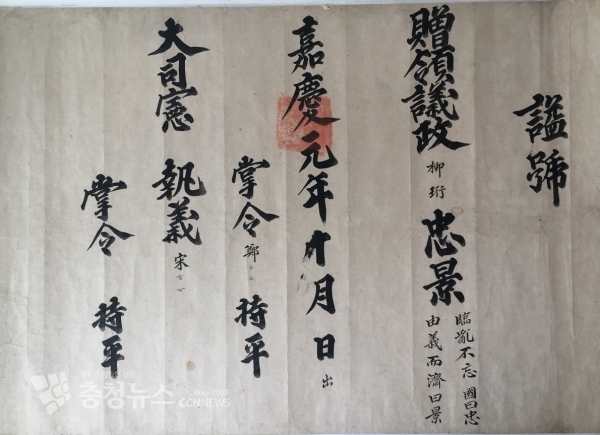 諡號
贈領議政 柳珩 忠景 臨亂不忘國曰忠
由義而濟曰景
嘉慶元年十月日 出
掌令 鄭 持平
大司憲 執義 宋
掌令 持平
충청뉴스
CCNNEWS